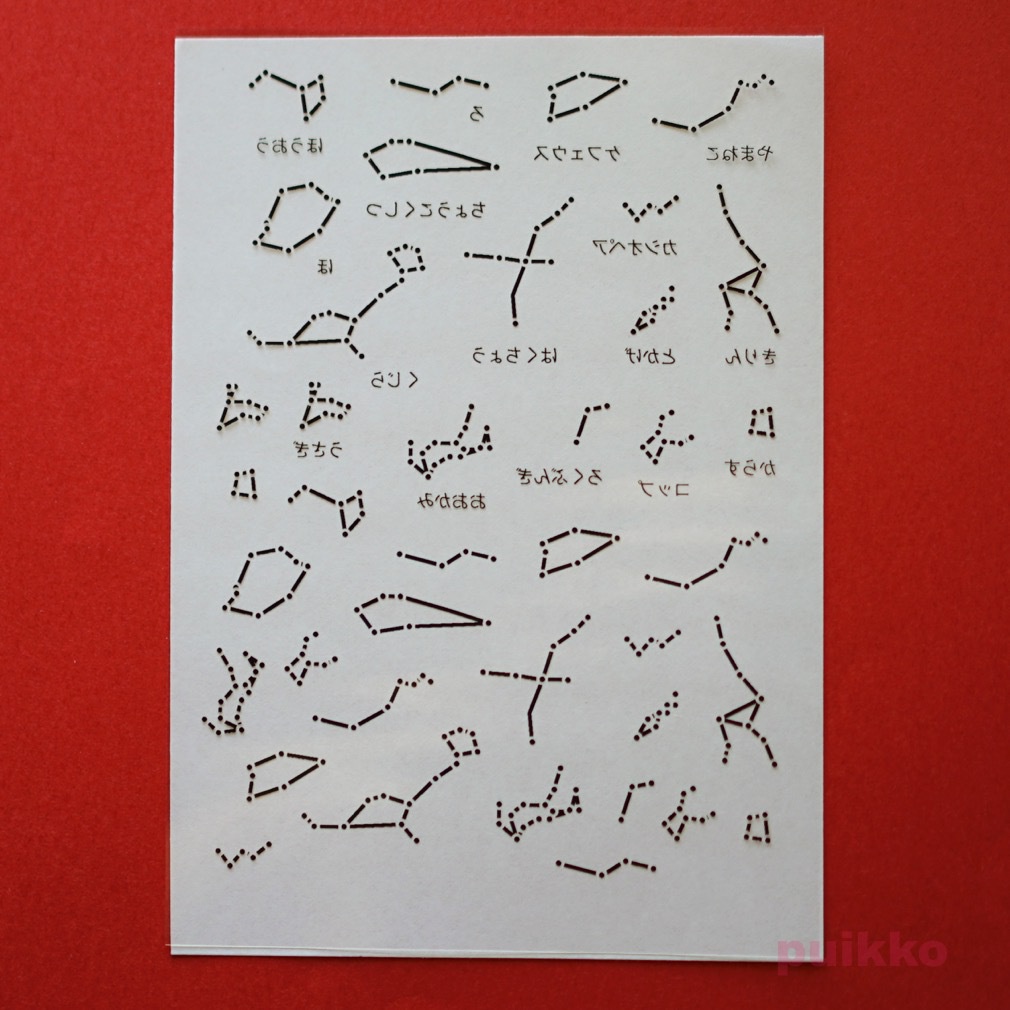 ろ
ほうおう
ケフェウス
やまねこ
ちょうこくしつ
カシオペア
ほ
はくちょう
とかげ
きりん
くじら
うさぎ
おおかみ
ろくぶんぎ
コップ
からす
puikko